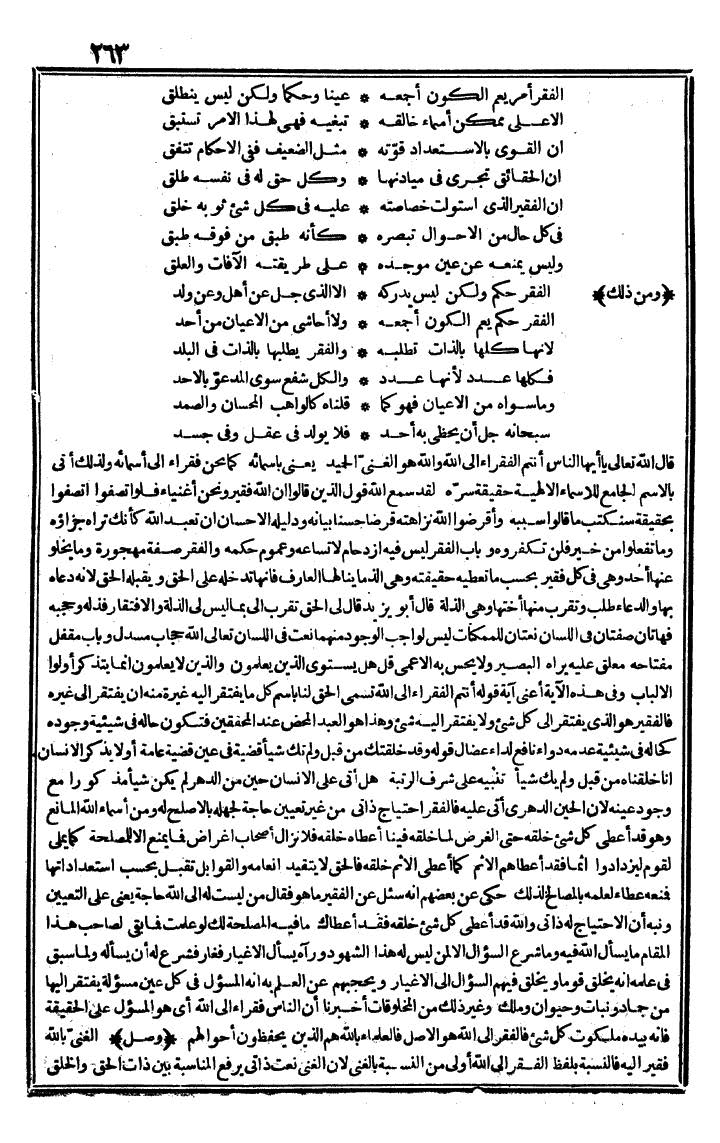 ٢٦٣
الفقر أمر يعم الكون أجمعه * عينا وحكما ولكن ليس ينطلق
الا على ممكن أسماء خالقه * تبغيه فهى لهذا الامر تستبق
ان القوى بالاستعداد قوّته * مثل الضعيف ففى الاحكام تتفق
ان الحقائق تجرى فى ميادنها * وكل حق له فى نفسه طلق
ان الفقير الذى استولت خصاصته * عليه فى كل شئ ثوبه خلق
فى كل حال من الاحوال تبصره * كأنه طبق من فوقه طبق
وليس يمنعه عن عين موجده * على طريقته الآفات والعلق
﴿ومن ذلك﴾ الفقر حكم ولكن ليس يدركه * الا الذى جل عن أهل وعن ولد
الفقر حكم يعم الكون أجمعه * ولا أحاشى من الاعيان من أحد
لانها كلها بالذات تطلبه * والفقر يطلبها بالذات فى البلد
فكلها عدد لأنها عدد * والكل شفع سوى المدعوّ بالاحد
وما سواه من الاعيان فهو كما * قلناه كالواهب المحسان والصمد
سبحانه جل أن يحظى به أحد * فلا يولد فى عقل وفى جسد
قال الله تعالى يا أيها الناس أنتم الفقراء الى الله والله هو الغنىّ الحميد يعنى باسمائه كما نحن فقراء الى أسمائه ولذلك أتى
بالاسم الجامع للاسماء الالهية حقيقة سرّه لقد سمع الله قول الذين قالوا ان الله فقير ونحن أغنياء فلو اتصفوا اتصفوا
بحقيقة سنكتب ما قالوا سببه وأقرضوا الله نزاهته قرضا حسنا بيانه ودليله الاحسان ان تعبد الله كأنك تراه جزاؤه
وما تفعلوا من خير فلن تكفروه وباب الفقر ليس فيه ازدحام لاتساعه وعموم حكمه والفقر صفة مهجورة وما يخلو
عنها أحد وهى فى كل فقير بحسب ما تعطيه حقيقته وهى ألذ ما ينالها العارف فانها تدخله على الحق ويقبله الحق لانه دعاه
بها والدعاء طلب وتقرب منها أختها وهى الذلة قال أبو يزيد قال لى الحق تقرب الى بما ليس لى الذلة والافتقار فذله وحجبه
فهاتان صفتان فى اللسان نعتان للممكنات ليس لواجب الوجود منهما نعت فى اللسان تعالى الله حجاب مسدل وباب مقفل
مفتاحه معلق عليه يراه البصير ولا يحس به الاعمى قل هل يستوى الذين يعلمون والذين لا يعلمون انما يتذكر أولوا
الالباب وفى هذه الآية أعنى آية قوله أنتم الفقراء الى الله تسمى الحق لنا باسم كل ما يفتقر اليه غيرة منه ان يفتقر الى غيره
فالفقير هو الذى يفتقر الى كل شئ ولا يفتقر اليه شئ وهذا هو العبد المحض عند المحققين فتكون حاله فى شيئية وجوده
كحاله فى شيئية عدمه دواء نافع لداء عضال قوله وقد خلقتك من قبل ولم تك شيأ قضية فى عين قضية عامة أولا يذكر الانسان
انا خلقناه من قبل ولم يك شيأ تنبيه على شرف الرتبة هل أتى على الانسان حين من الدهر لم يكن شيأ مذكورا مع
وجود عينه لان الحين الدهرى أتى عليه فالفقر احتياج ذاتى من غير تعيين حاجة لجهله بالاصلح له ومن أسماء الله المانع
وهو قد أعطى كل شئ خلقه حتى الغرض لما خلقه فينا أعطاه خلقه فلا نزال أصحاب اغراض فما يمنع الا للمصلحة كما يملى
لقوم ليزدادوا اثما فقد أعطاهم الاثم كما أعطى الاثم خلقه فالحق لا يتقيد انعامه والقوابل تقبل بحسب استعداداتها
فمنعه عطاء لعلمه بالمصالح لذلك حكى عن بعضهم انه سئل عن الفقير ما هو فقال من ليست له الى الله حاجة يعنى على التعيين
ونبه أن الاحتياج له ذاتى والله قد أعطى كل شئ خلقه فقد أعطاك ما فيه المصلحة لك لو علمت فما بقى لصاحب هذا
المقام ما يسأل الله فيه وما شرع السؤال الا لمن ليس له هذا الشهود ورآه يسأل الاغيار فغار فشرع له أن يسأله ولما سبق
فى علمه انه يخلق قوما ويخلق فيهم السؤال الى الاغيار ويحجبهم عن العلم به انه المسؤل فى كل عين مسؤلة يفتقر اليها
من جماد ونبات وحيوان وملك وغير ذلك من المخلوقات أخبرنا أن الناس فقراء الى الله أى هو المسؤل على الحقيقة
فانه بيده ملكوت كل شئ فالفقر الى الله هو الاصل فالعلماء بالله هم الذين يحفظون أحوالهم ﴿وصل﴾ الغنىّ بالله
فقير اليه فالنسبة بلفظ الفقر الى الله أولى من النسبة بالغنى لان الغنى نعت ذاتى يرفع المناسبة بين ذات الحق والخلق